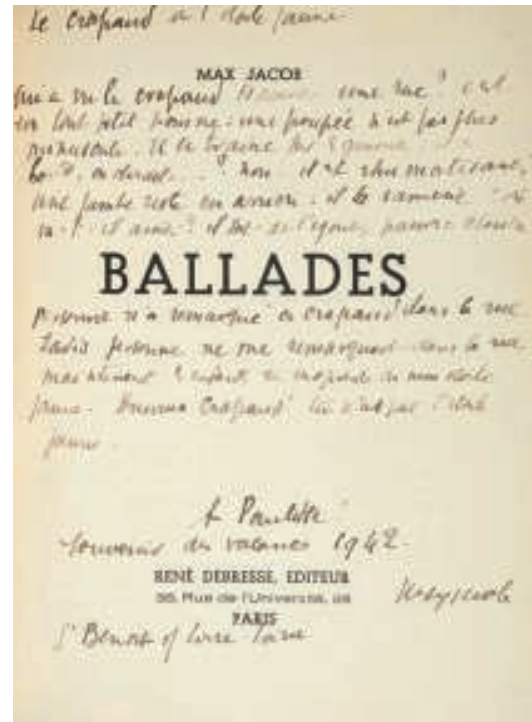 Le crapaud à l'étoile jaune
MAX JACOB
le crapaud une rue ? c'est
un tout petit homme : une poupée n'est pas plus
minuscule. Il se traîne
on dirait ? non il est rhumatisant
une jambe reste en arrière. il la ramène
pauvre clown
BALLADES
Personne n'a remarqué ce crapaud dans la rue
Jadis personne ne me remarquait dans la rue
maintenant les enfants se moquent de mon étoile
jaune. Heureux crapaud ! tu n'as pas l'étoile
jaune.
à Paulette
souvenir des vacances 1942
RENÉ DEBRESSE, EDITEUR
38, Rue de l'Université, 38
PARIS
Max Jacob
St Benoit s/ Loire Loiret